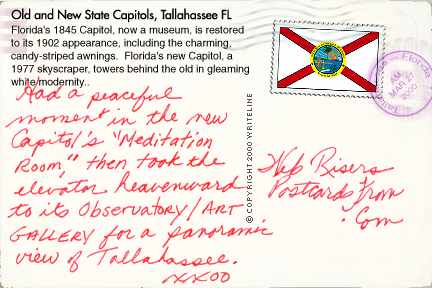 Old and New State Capitols, Tallahassee FL
Florida's 1845 Capitol, now a museum, is restored
to its 1902 appearance, including the charming,
candy-striped awnings. Florida's new Capitol, a
1977 skyscraper, towers behind the old in gleaming
white/modernity..
Had a peaceful
moment in the new
Capitol's "Meditation
Room," then took the
elevator heavenward
to its OBSERVATORY/ART
GALLERY for a panoramic
view of Tallahassee.
xxoo
© COPYRIGHT 2000 WRITELINE
Web Risers
Postcards From
.Com
Florida
AM
MAR 27
2000